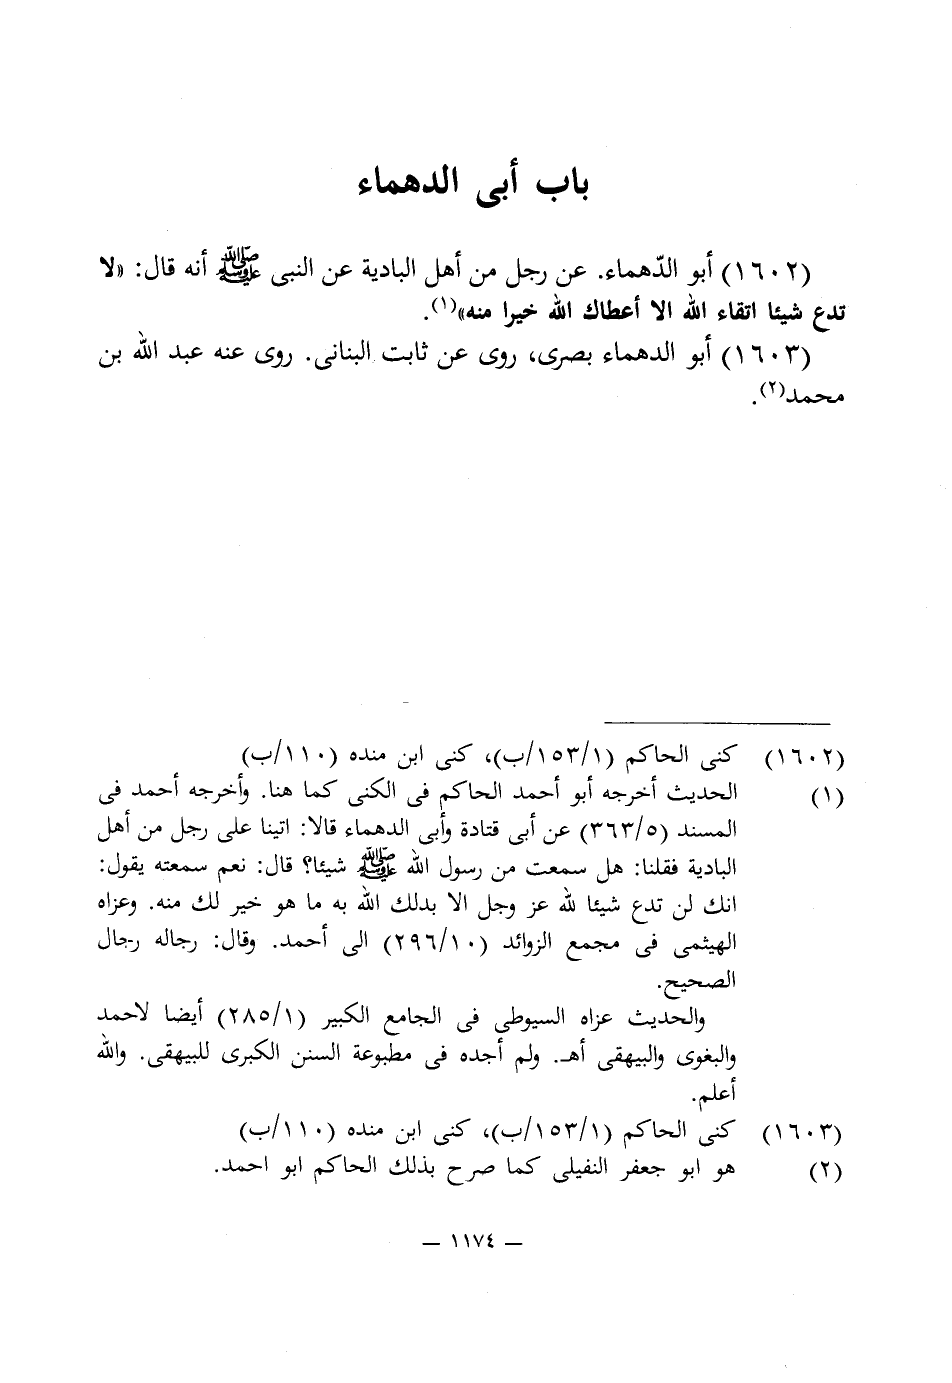 باب أبى الدهماء
(١٦٠٢) أبو الدّهماء. عن رجل من أهل البادية عن النبى ﷺ أنه قال: «لا
تدع شيئا اتقاء الله الا أعطاك الله خيرا منه»(١).
(١٦٠٣) أبو الدهماء بصرى، روى عن ثابت البنانى. روى عنه عبد الله بن
محمد(٢).
(١٦٠٢) كنى الحاكم (١/١٥٣/ب)، كنى ابن منده (١١٠/ب)
(١) الحديث أخرجه أبو أحمد الحاكم فى الكنى كما هنا. وأخرجه أحمد فى
المسند (٥/٣٦٣) عن أبى قتادة وأبى الدهماء قالا: اتينا على رجل من أهل
البادية فقلنا: هل سمعت من رسول الله ﷺ شيئا؟ قال: نعم سمعته يقول:
انك لن تدع شيئا لله عز وجل الا بدلك الله به ما هو خير لك منه. وعزاه
الهيثمى فى مجمع الزوائد (١٠/٢٩٦) الى أحمد. وقال: رجاله رجال
الصحيح.
والحديث عزاه السيوطى فى الجامع الكبير (١/٢٨٥) أيضا لاحمد
والبغوى والبيهقى أهـ. ولم أجده فى مطبوعة السنن الكبرى للبيهقى. والله
أعلم.
(١٦٠٣) كنى الحاكم (١/١٥٣/ب)، كنى ابن منده (١١٠/ب)
(٢) هو ابو جعفر النفيلى كما صرح بذلك الحاكم ابو احمد.
— ١١٧٤ —